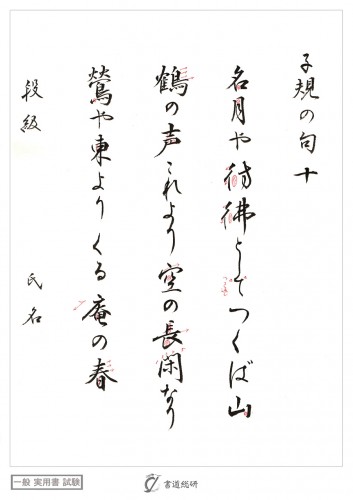 子規の句十
名月や彷彿としてつくば山
鶴の声これより空の長閑なり
鶯や東よりくる庵の春
段級 氏名
一般 実用書 試験
書道総研